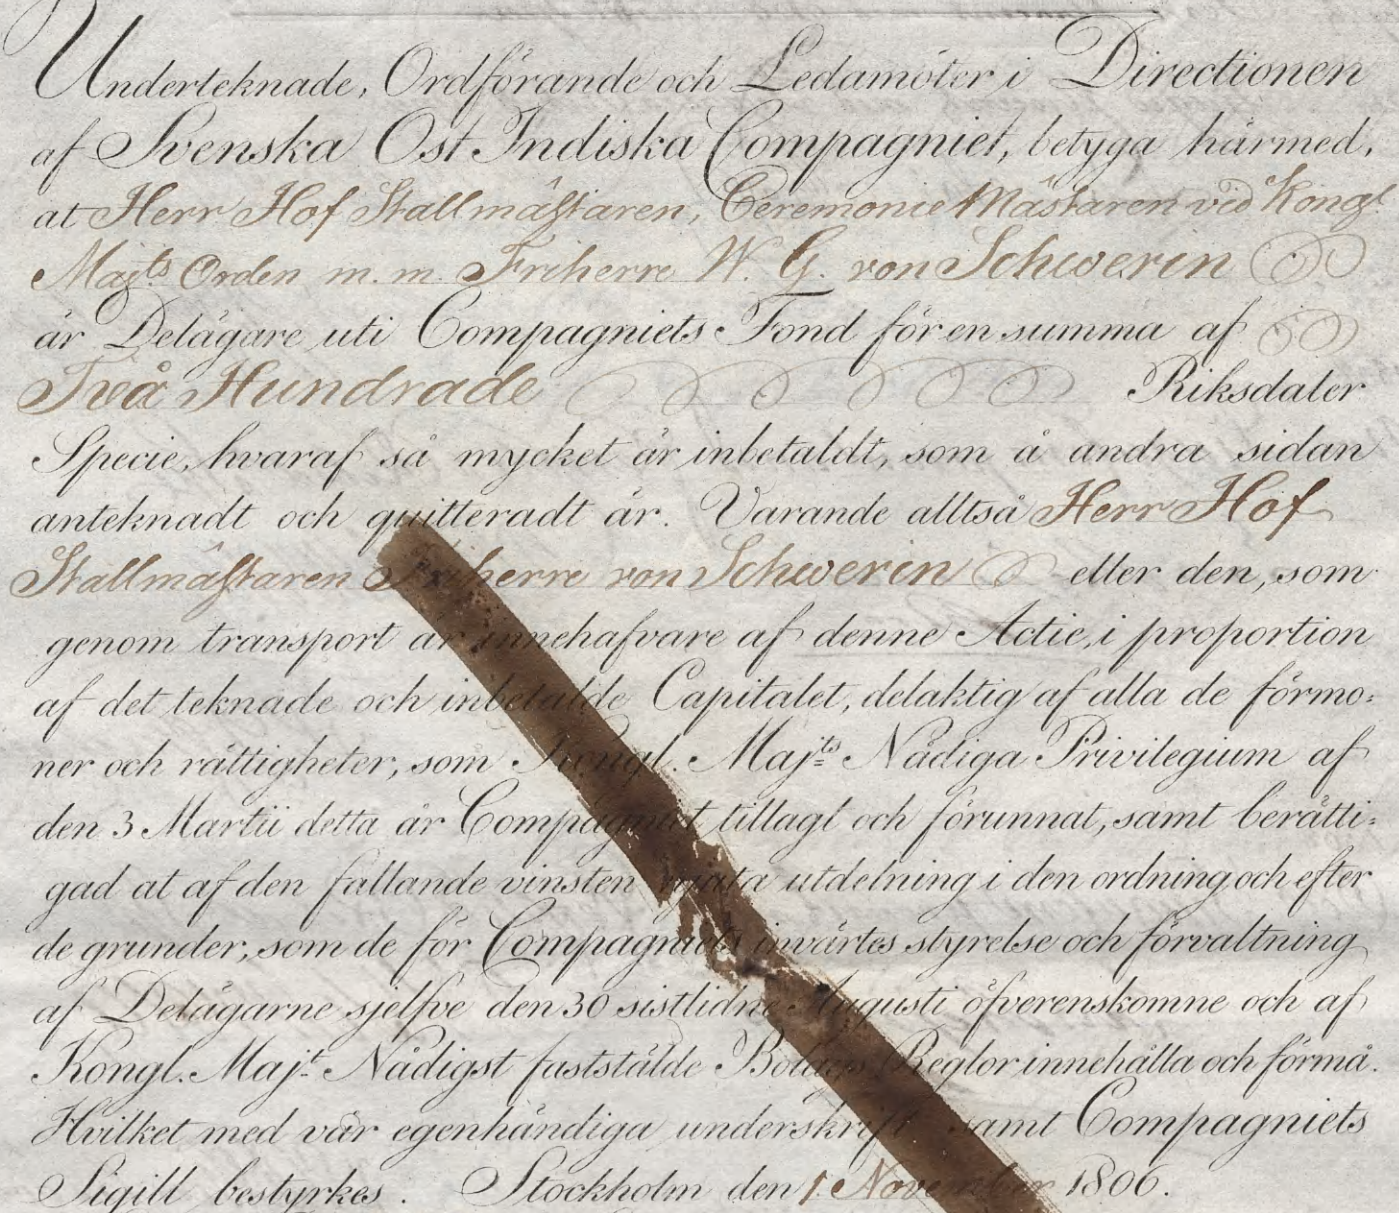 Underteknade, Ordförande och Ledamöter i Directionen
af Svenska Ost Indiska Compagniet, betyga härmed,
at Herr Hof Stallmästaren, Ceremonie Mästaren vid Kongl.
Maj:ts Orden m. m. Friherre W. G. von Schwerin
är Delägare uti Compagniets Fond för en summa af
Två Hundrade Riksdaler
Specie, hvaraf så mycket är inbetaldt, som å andra sidan
anteknadt och quitteradt är. Varande alltså Herr Hof
Stallmästaren Friherre von Schwerin eller den, som
genom transport är innehafvare af denne Actie, i proportion
af det teknade och inbetalde Capitalet, delaktig af alla de förmo:
ner och rättigheter, som Kongl. Maj:ts Nådiga Privilegium af
den 3 Martii detta år Compagniet tillagt och förunnat, samt berätti:
gad at af den fallande vinsten njuta utdelning i den ordning och efter
de grunder, som de för Compagniets invärtes styrelse och förvaltning
af Delägarne sjelfve den 30 sistlidne Augusti öfverenskomne och af
Kongl. Maj:t Nådigst fastställde Bolags Reglor innehålla och förmå.
Hvilket med vår egenhändiga underskrift samt Compagniets
Sigill bestyrkes. Stockholm den 1 November 1806.